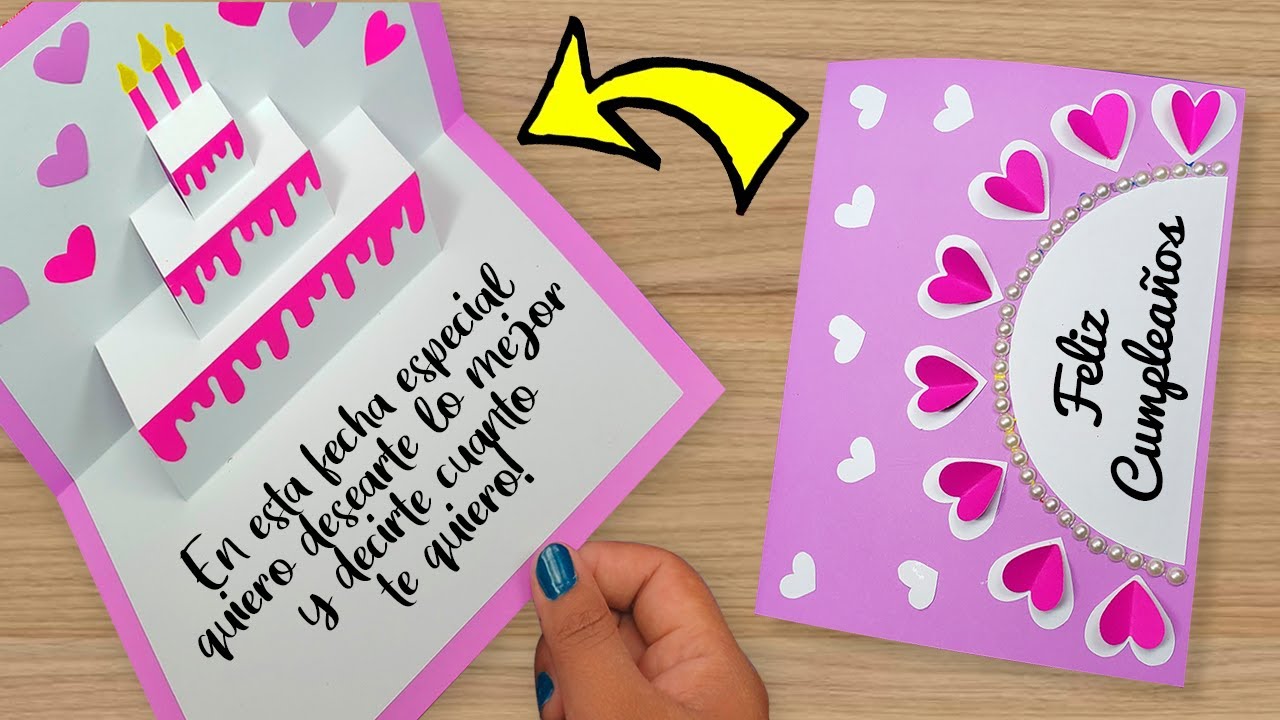 En esta fecha especial
quiero desearte lo mejor
y decirte cuanto
te quiero!
Feliz
Cumpleaños